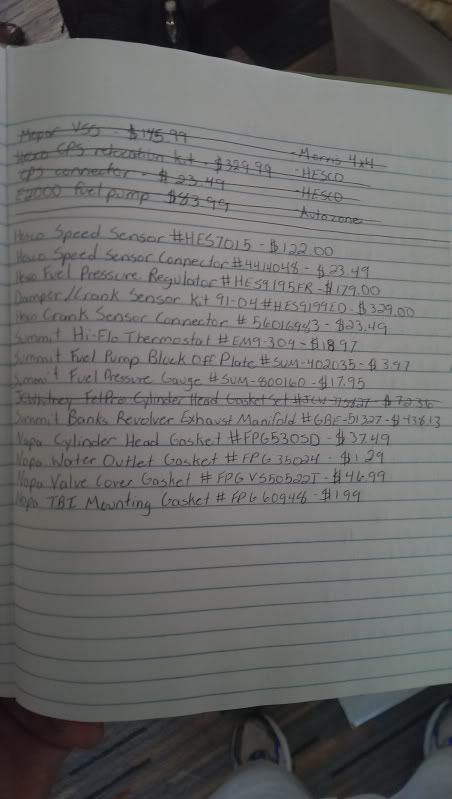 Mopar VSS - $145.99 - Morris 4x4
Hesco CPS relocation kit - $329.99 - HESCO
CPS connector - $23.49 - HESCO
E2000 fuel pump $83.99 Autozone
Hesco Speed Sensor #HES7015 - $122.00
Hesco Speed Sensor Connector #4414048 - $23.49
Hesco Fuel Pressure Regulator #HES9195FR - $179.00
Damper/Crank Sensor Kit 91-04 #HES9199ED - $329.00
Hesco Crank Sensor Connector # 56016943 - $23.49
Summit Hi-Flo Thermostat #EM9-309 - $18.97
Summit Fuel Pump Block Off Plate #SUM-402035 - $3.97
Summit Fuel Pressure Gauge #SUM-800160 - $17.95
JCWhitney FelPro Cylinder Head Gasket Set $72.36
Summit Banks Revolver Exhaust Manifold #GBE-51327 - $438.13
Napa Cylinder Head Gasket #FPG530SD - $37.49
Napa Water Outlet Gasket #FPG 35024 - $1.29
Napa Valve Cover Gasket # FPG VS50522T - $46.99
Napa TBI Mounting Gasket #FPG 60948 - $1.99